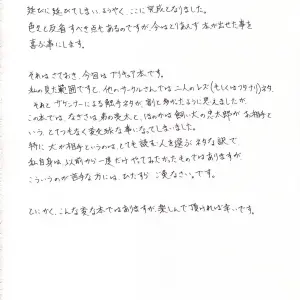 延びに延びてしまい、ようやく、ここに完成となりました。
色々と反省すべき点もあるのですが、今はとりあえず本が出せた事を
喜ぶ事にします。
それはさておき、今回はプリキュア本です。
私の見た範囲ですと、他のサークルさんでは二人のレズ(もしくはフタナリ)ネタ、
それと ゲキドラーゴによる触手ネタが、割と多かったように思えましたが、
この本では、なぎさは弟の亮太と、ほのかは飼い犬の忠太郎がお相手と
いう、とてつもなく変化球な事になってしまいました。
特に 犬が相手というのは、とても読む人を選ぶネタな訳で
私自身は以前から一度だけやってみたかったものではありますが、
こういうのが苦手な方には、ひたすら ご免なさい。です。
とにかく、こんな変な本ではありますが、楽しんで頂ければ幸いです。